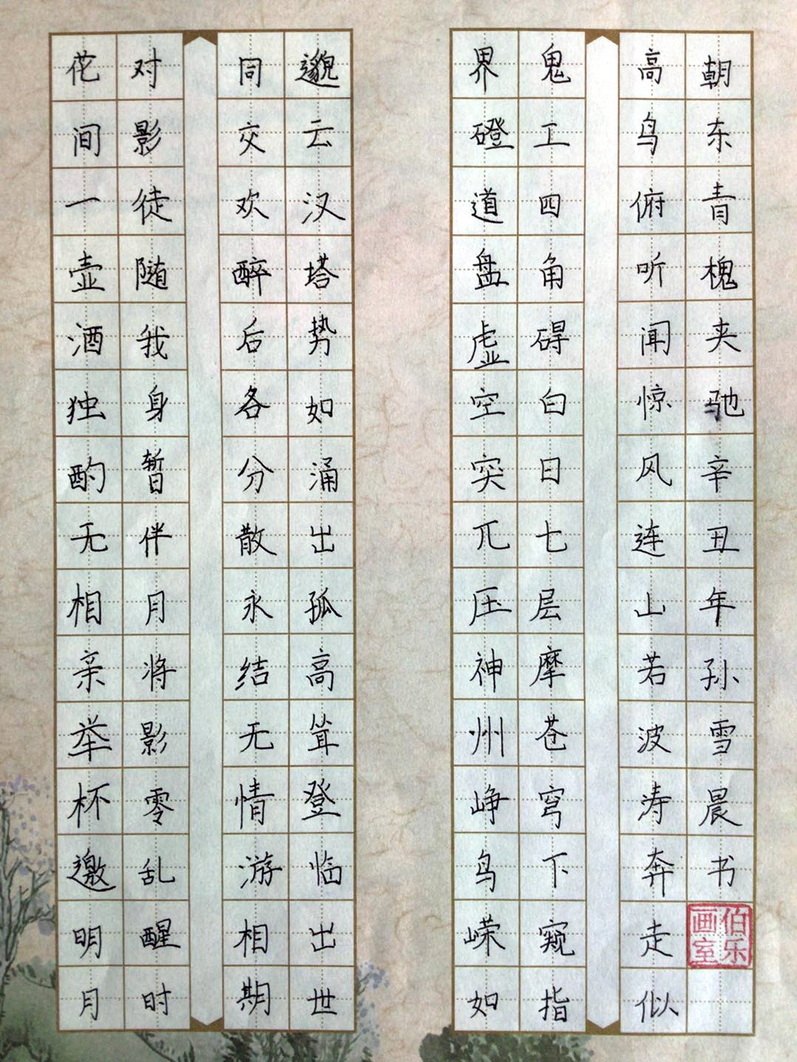 花间一壶酒独酌无相亲举杯邀明月
对影徒随我身暂伴月将影零乱醒时
同交欢醉后各分散永结无情游相期
邈云汉塔势如涌出孤高耸登临出世
界磴道盘虚空突兀压神州峥鸟嵘如
鬼工四角碍白日七层摩苍穹下窥指
高鸟俯听闻惊风连山若波涛奔走似
朝东青槐夹驰辛丑年孙雪晨书
伯乐画室